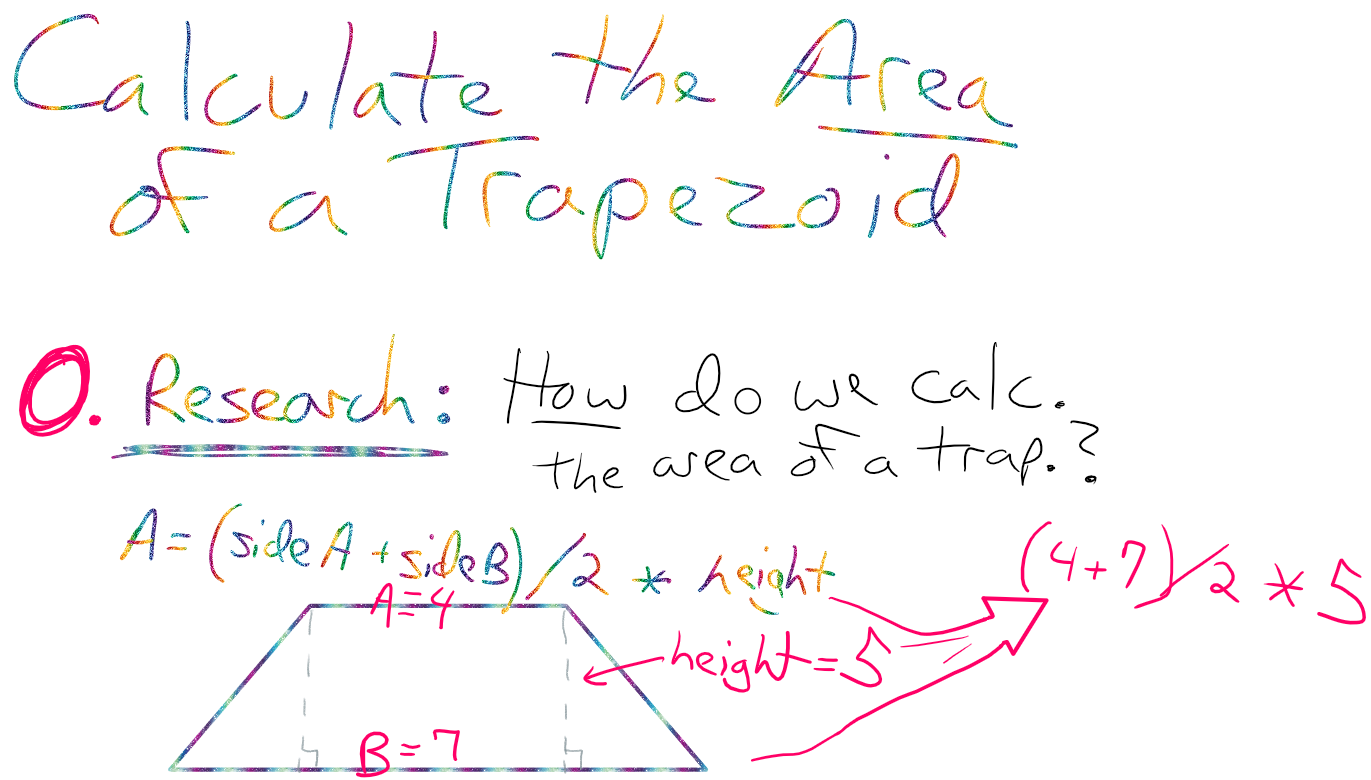 Calculate the Area
of a Trapezoid
0. Research: How do we calc.
the area of a trap.?
A=(sideA+sideB)/2 * height
(4+7)/2 * 5
A=4
height=5
B=7